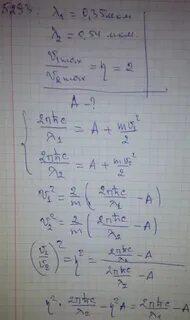 5.293. λ₁ = 0,35 мкм
λ₂ = 0,54 мкм
v₁max / v₂max = η = 2
A - ?
2πħc/λ₁ = A + mv₁²/2
2πħc/λ₂ = A + mv₂²/2
v₁² = 2/m (2πħc/λ₁ - A)
v₂² = 2/m (2πħc/λ₂ - A)
(v₁/v₂)² = η² = (2πħc/λ₁ - A) / (2πħc/λ₂ - A)
η² · 2πħc/λ₂ - η²A = 2πħc/λ₁ - A